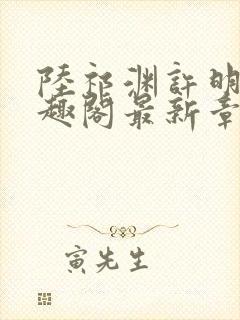 陸祁渊許明
趣閣最新章
寅先生